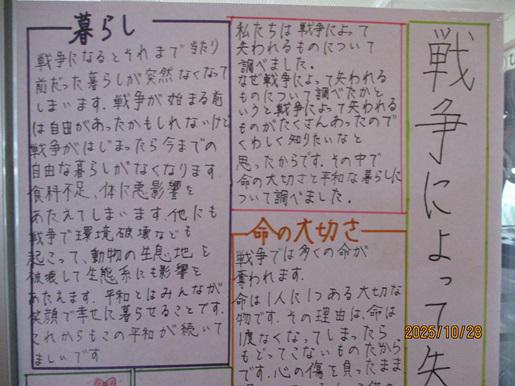 戦争によって失
私たちは戦争によって
失われるものについて
調べました。
なぜ戦争によって失われる
ものについて調べたかと
いうと戦争によって失われる
ものがたくさんあったので
くわしく知りたいなと
思ったからです。その中で
命の大切さと平和な暮らしに
ついて調べました。
命の大切さ
戦争では多くの命が
奪われます。
命は1人に1つある大切な
物です。その理由は、命は
1度なくなってしまったら
もどってこないものだから
です。心の傷を負ったまま
暮らし
戦争になるとそれまで当たり
前だった暮らしが突然なくなって
しまいます。戦争が始まる前
は自由があったかもしれないけど
戦争がはじまったら今までの
自由な暮らしがなくなります
食料不足、体に悪影響を
あたえてしまいます。他にも
戦争で環境破壊なども
起こって、動物の生息地を
破壊して生態系にも影響を
あたえます。平和とはみんなが
笑顔で幸せに暮らせることです。
これからもこの平和が続いて
ほしいです
2025/10/28